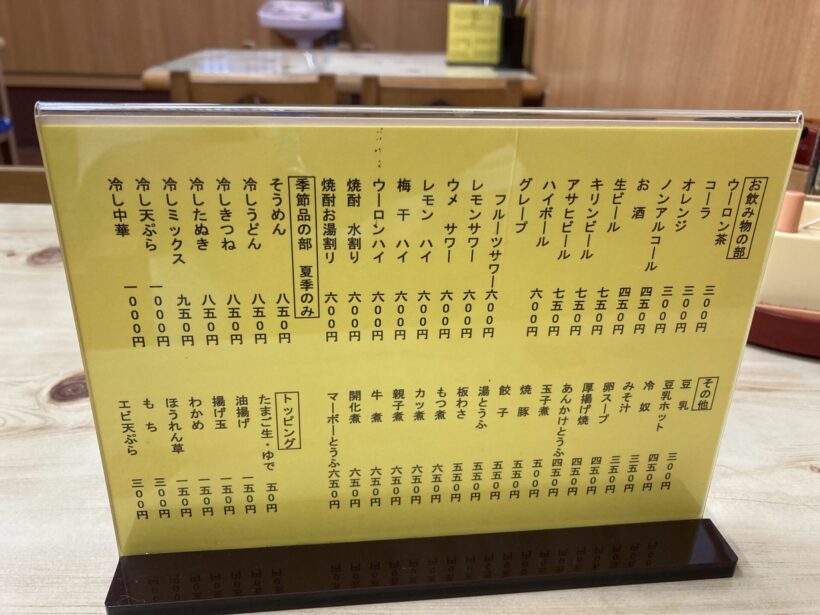 お飲み物の部
ウーロン茶 三〇〇円
コーラ 三〇〇円
オレンジ 三〇〇円
ノンアルコール 四五〇円
お酒 四五〇円
生ビール 七五〇円
キリンビール 七五〇円
アサヒビール 七五〇円
ハイボール 六〇〇円
グレープ
フルーツサワー 六〇〇円
レモンサワー 六〇〇円
ウメ サワー 六〇〇円
レモン ハイ 六〇〇円
梅干 ハイ 六〇〇円
ウーロンハイ 六〇〇円
焼酎 水割り 六〇〇円
焼酎お湯割り 六〇〇円
季節品の部 夏季のみ
そうめん 八五〇円
冷しうどん 八五〇円
冷しきつね 八五〇円
冷したぬき 八五〇円
冷しミックス 九五〇円
冷し天ぷら 一〇〇〇円
冷し中華 一〇〇〇円
その他
豆乳 三〇〇円
豆乳ホット 四五〇円
冷奴 三五〇円
みそ汁 三五〇円
卵スープ 四五〇円
厚揚げ焼 四五〇円
あんかけとうふ 四五〇円
玉子煮 五〇〇円
焼豚 五五〇円
餃子 五五〇円
湯とうふ 五五〇円
板わさ 五五〇円
もつ煮 六五〇円
カツ煮 六五〇円
親子煮 六五〇円
牛煮 六五〇円
開化煮 六五〇円
マーボーとうふ 六五〇円
トッピング
たまご生・ゆで 五〇円
油揚げ 一五〇円
揚げ玉 一五〇円
わかめ 一五〇円
ほうれん草 一五〇円
もち 三〇〇円
エビ天ぷら 三〇〇円